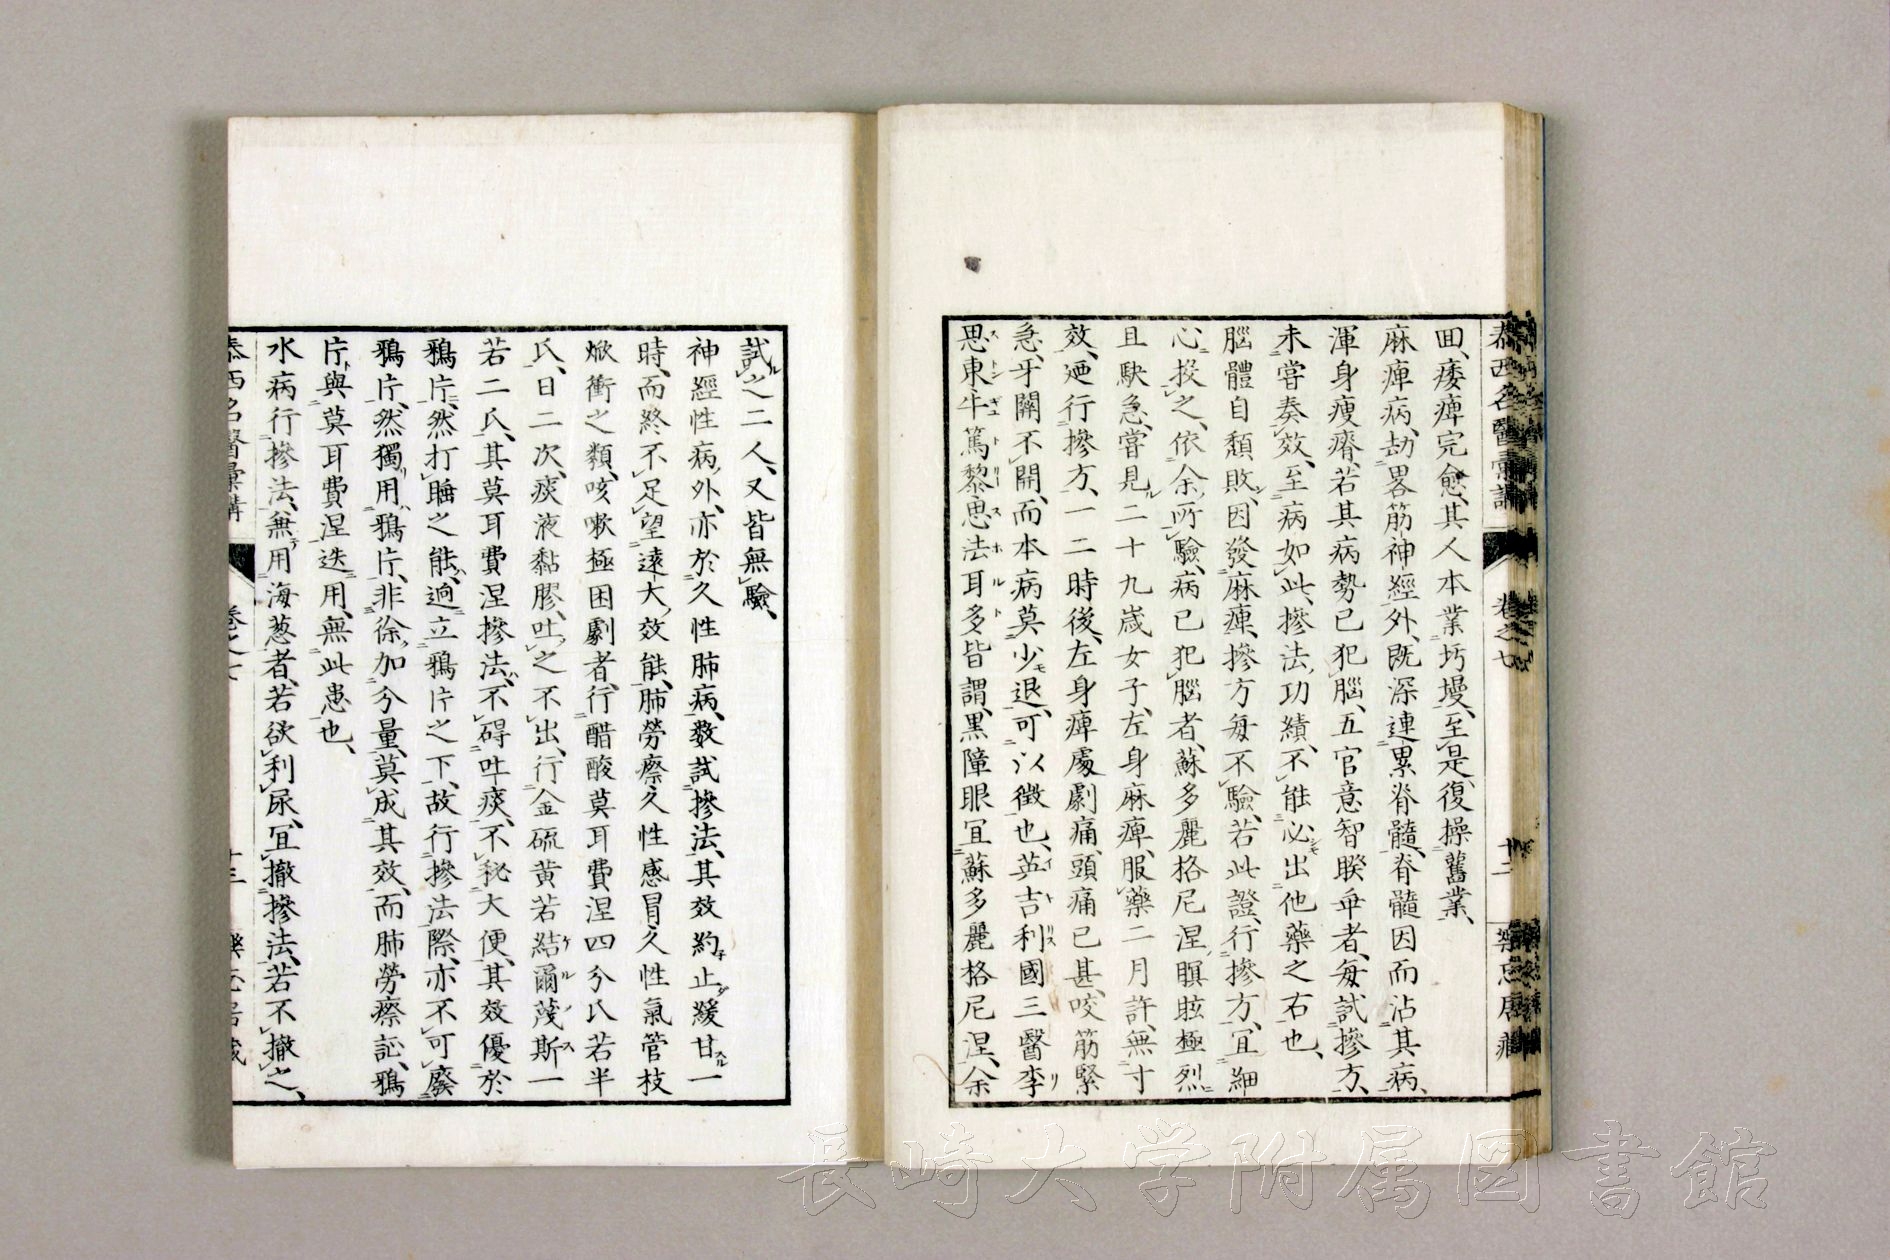 泰西名醫彙講 卷之七 十二 樂忘居藏
回、痿痺完愈、其人本業圬墁、至是復操舊業、
麻痺病、劫畧筋神經外、既深連累脊髓、脊髓因而沾其病、
渾身瘦瘠、若其病勢已犯腦、五官意智睽乖者、每試摻方、
未嘗奏效、至病如此、摻法功績、不能必出他藥之右也、
腦體自頽敗、因發麻痺、摻方每不驗、若此證、行摻方、宜細
心投之、依余所驗、病已犯腦者、蘇多麗格尼涅、瞑眩極烈
且駃急、嘗見二十九歲女子、左身麻痺、服藥二月許、無寸
效、廼行摻方、一二時後、左身痺處劇痛、頭痛已甚、咬筋緊
急、牙關不開、而本病莫少退、可以徵也、英吉利國三醫李
思東牛篤黎思法耳多皆謂、黒障眼宜蘇多麗格尼涅、余
試之二人、又皆無驗、
神經性病外、亦於久性肺病、數試摻法、其效約止緩甘一
時、而終不足望遠大效能、肺勞瘵久性感冒久性氣管枝
焮衝之類、咳嗽極困劇者、行醋酸莫耳費涅四分氏若半
氏、日二次、痰液黏膠、吐之不出、行金硫黄若結爾蔑斯一
若二氏、其莫耳費涅摻法、不碍吐痰、不秘大便、其效優於
鴉片、然打睡之能、逈立鴉片之下、故行摻法際、亦不可廢
鴉片、然獨用鴉片、非徐加分量、莫成其效、而肺勞瘵証、鴉
片與莫耳費涅迭用、無此患也、
水病行摻法、無用海葱者、若欲利尿、宜撤摻法、若不撤之、
泰西名醫彙講 卷之七 十三 樂忘居藏
長崎大学附属図書館